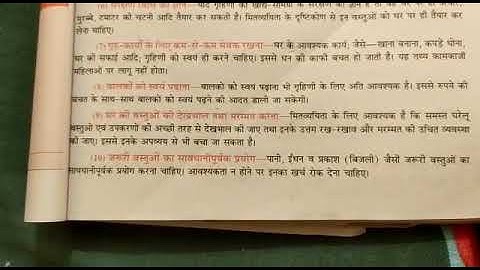 मुरब्बे, टमाटर की चटनी आदि तैयार कर सकती है। मितव्ययिता के दृष्टिकोण से इन वस्तुओं को घर पर ही तैयार कर
लेना चाहिए।
(7) गृह-कार्यों के लिए कम-से-कम सेवक रखना— घर के आवश्यक कार्य; जैसे—खाना बनाना, कपड़े धोना,
घर की सफाई आदि; गृहिणी को स्वयं ही करने चाहिए। इससे धन की काफी बचत हो जाती है। यह तथ्य कामकाजी
महिलाओं पर लागू नहीं होता।
(8) बालकों को स्वयं पढ़ाना— बालकों को स्वयं पढ़ाना भी गृहिणी के लिए अति आवश्यक है। इससे रुपये की
बचत के साथ-साथ बालकों को स्वयं पढ़ने की आदत डाली जा सकेगी।
(9) घर की वस्तुओं की देखभाल तथा मरम्मत करना— मितव्ययिता के लिए आवश्यक है कि समस्त घरेलू
वस्तुओं एवं उपकरणों की अच्छी तरह से देखभाल की जाए तथा इनके उत्तम रख-रखाव और मरम्मत की उचित व्यवस्था
की जाए। इससे इनके अपव्यय से भी बचा जा सकता है।
(10) जरूरी वस्तुओं का सावधानीपूर्वक प्रयोग— पानी, ईंधन व प्रकाश (बिजली) जैसी जरूरी वस्तुओं का
सावधानीपूर्वक प्रयोग करना चाहिए। आवश्यकता न होने पर इनका खर्च रोक देना चाहिए।